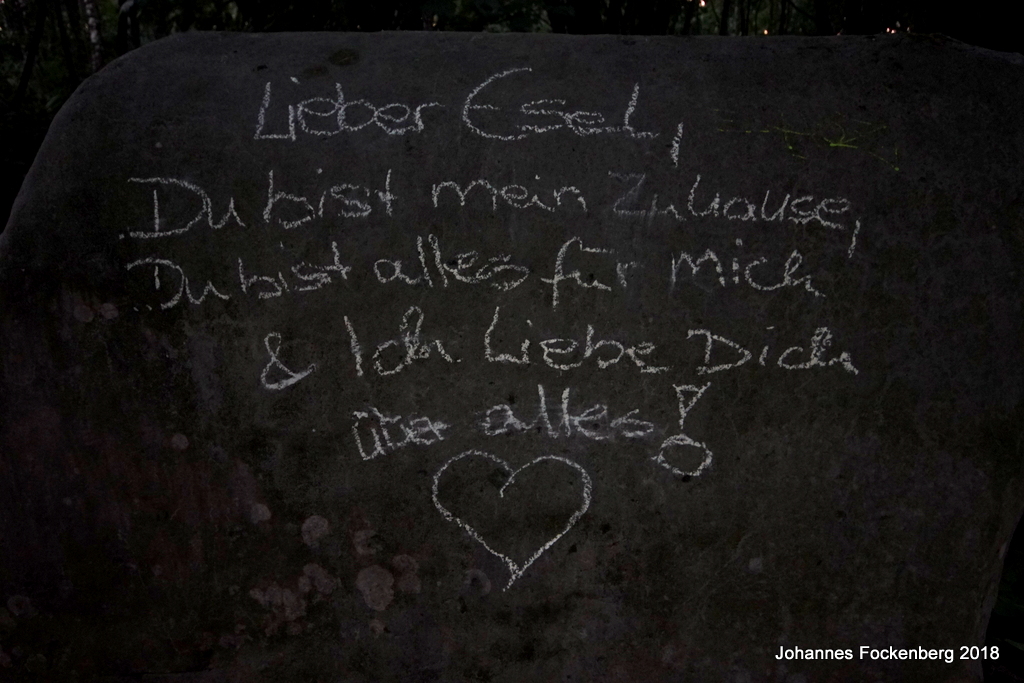 Lieber Esel,
Du bist mein Zuhause,
Du bist alles für Mich
& Ich Liebe Dich
über alles!
Johannes Fockenberg 2018